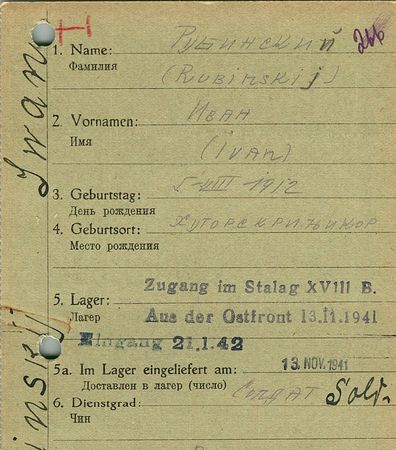 H
266
1. Name: Рубинский
Фамилия (Rubinskij)
2. Vornamen: Иван
Имя (Ivan)
3. Geburtstag: 5-VIII 1912
День рождения
4. Geburtsort:
Место рождения
Zugang im Stalag XVIII B.
5. Lager:
Лагер Aus der Ostfront 13.11.1941
Eingang 21.1.42
5a. Im Lager eingeliefert am: 13. NOV. 1941
Доставлен в лагер (число)
6. Dienstgrad: Солдат Sold.
Чин
Iwan
insk